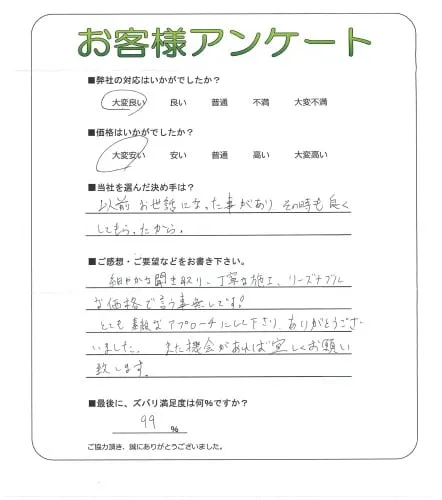 お客様アンケート
■弊社の対応はいかがでしたか？
大変良い 良い 普通 不満 大変不満
■価格はいかがでしたか？
大変安い 安い 普通 高い 大変高い
■当社を選んだ決め手は？
以前 お世話になった事があり その時も良く
してもらったから。
■ご感想・ご要望などをお書き下さい。
細やかな聞き取り、丁寧な施工、リーズナブル
な価格で言う事無しです!
とても素敵なアプローチにして下さり、ありがとうござ
いました。 また機会があれば宜しくお願い
致します。
■最後に、ズバリ満足度は何%ですか？
99 %
ご協力頂き、誠にありがとうございました。